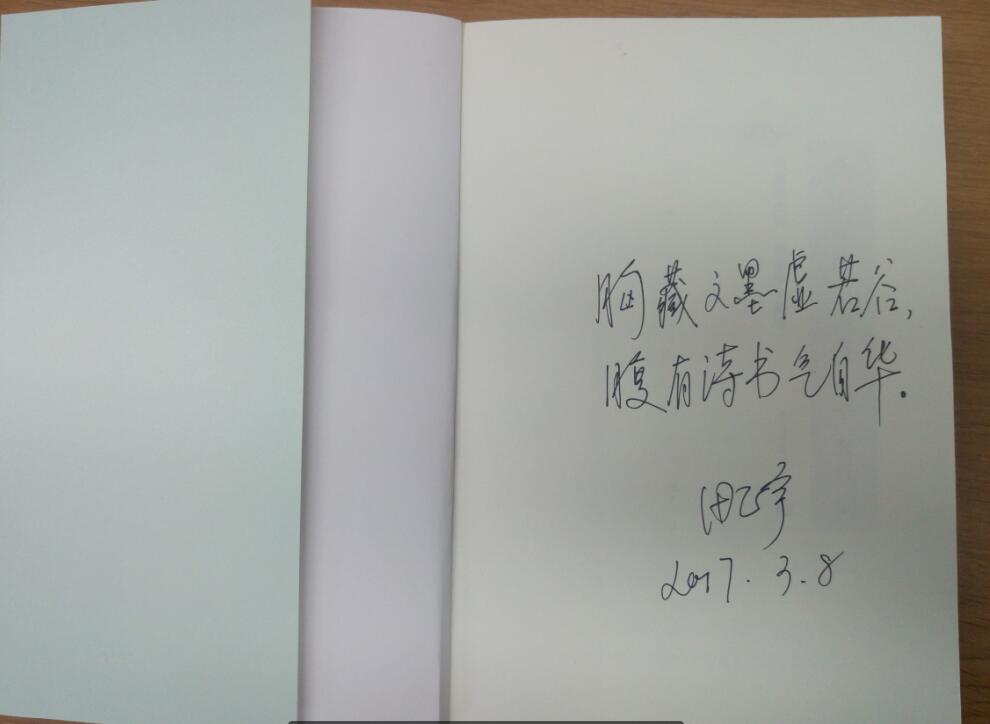 胸藏文墨虚若谷,
腹有诗书气自华.
田乙宇
2017.3.8